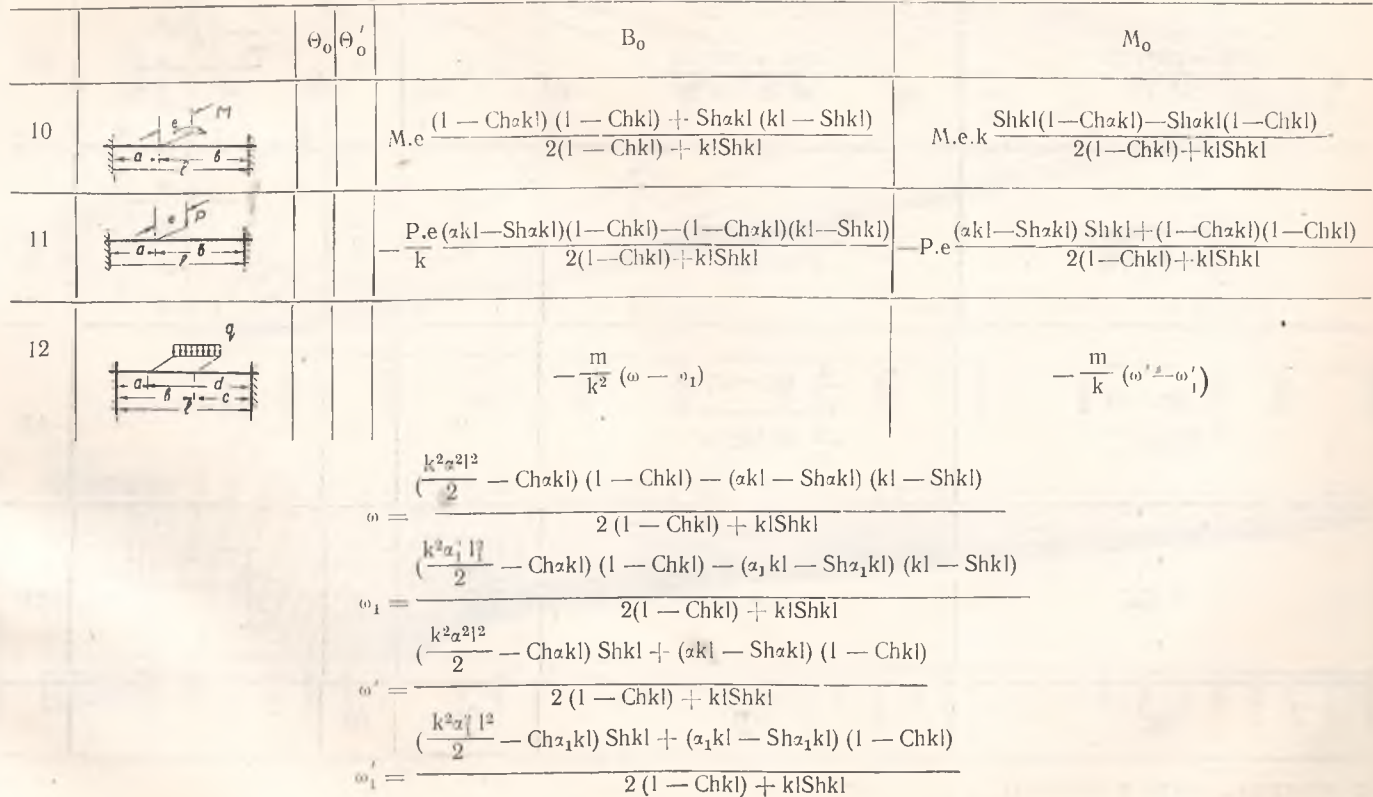 Θ₀ Θ₀′ B₀ M₀
10 M e a b l M.e \frac{(1 — Chαkl) (1 — Chkl) + Shαkl (kl — Shkl)}{2(1 — Chkl) + klShkl} M.e.k \frac{Shkl(1—Chαkl)—Shαkl(1—Chkl)}{2(1—Chkl)+klShkl}
11 e P a b l — \frac{P.e}{k} \frac{(αkl—Shαkl)(1—Chkl)—(1—Chαkl)(kl—Shkl)}{2(1—Chkl)+klShkl} —P.e \frac{(αkl—Shαkl) Shkl+(1—Chαkl)(1—Chkl)}{2(1—Chkl)+klShkl}
12 q a d b c l — \frac{m}{k²} (ω — ω₁) — \frac{m}{k} (ω′—ω₁′)
ω = \frac{(\frac{k²α²l²}{2} — Chαkl) (1 — Chkl) — (αkl — Shαkl) (kl — Shkl)}{2 (1 — Chkl) + klShkl}
ω₁ = \frac{(\frac{k²α₁² l₁²}{2} — Chαkl) (1 — Chkl) — (α₁kl — Shα₁kl) (kl — Shkl)}{2(1 — Chkl) + klShkl}
ω′ = \frac{(\frac{k²α²l²}{2} — Chαkl) Shkl + (αkl — Shαkl) (1 — Chkl)}{2 (1 — Chkl) + klShkl}
ω₁′ = \frac{(\frac{k²α₁² l²}{2} — Chα₁kl) Shkl + (α₁kl — Shα₁kl) (1 — Chkl)}{2 (1 — Chkl) + klShkl}